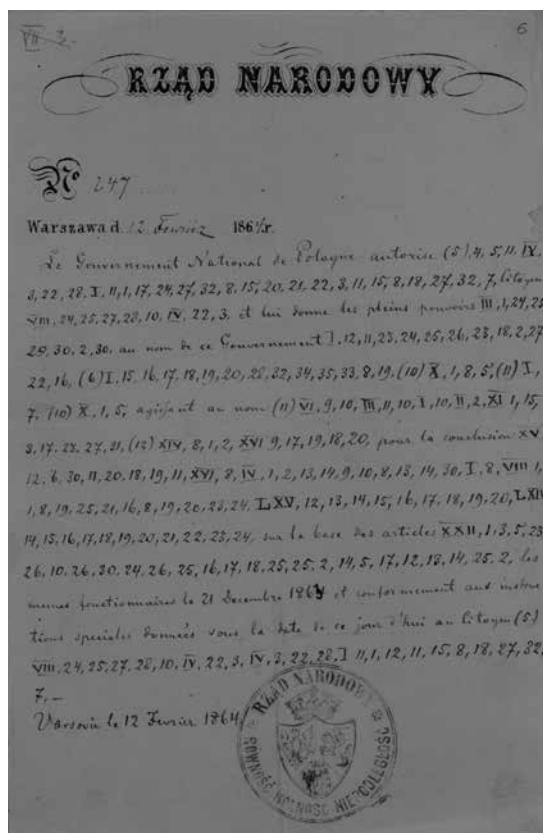 VII 3.
6
RZĄD NARODOWY
No 247
Warszawa d. 12 Fevrier 1864 r.
Le Gouvernement National de Pologne autorise (5) 4, 5, 11, IV,
3, 22, 28, I, 11, 1, 17, 24, 27, 32, 8, 15, 20, 21, 22, 3, 11, 15, 8, 18, 27, 32, 7, Citoyen
VIII, 24, 25, 27, 28, 10, IV, 22, 3, et lui donne les pleins pouvoirs III, 1, 24, 25
29, 30, 2, 30, au nom de ce Gouvernement I, 12, 11, 23, 24, 25, 26, 28, 18, 2, 27
22, 16, (6) I, 15, 16, 17, 18, 19, 20, 28, 32, 34, 35, 33, 8, 19, (10) X, 1, 8, 5, (11) I,
7, (10) X, 1, 5, agissant au nom (11) VI, 9, 10, III, 11, 10, I, 10, II, 2, XI 1, 15,
3, 17, 23, 27, 21, (12) XIV, 8, 1, 2, XVI 9, 17, 19, 18, 20, pour la conclusion XV
12, 6, 30, 11, 20, 18, 19, 11, XVI, 8, IV, 1, 2, 13, 14, 9, 10, 8, 13, 14, 30, I, 8, VIII 1,
1, 8, 19, 25, 21, 16, 8, 19, 20, 23, 24, LXV, 12, 13, 14, 15, 16, 17, 18, 19, 20, LXIV
14, 15, 16, 17, 18, 19, 20, 21, 22, 23, 24, sur la base des articles XXII, 1, 3, 5, 23
26, 10, 26, 30, 24, 26, 25, 16, 17, 18, 25, 25, 2, 14, 5, 17, 12, 13, 14, 25, 2, les
memes fonctionnaires le 21 Decembre 1863 et conformement aux instruc
tions speciales données sous la date de ce jour d'hui au Citoyen (5)
VIII, 24, 25, 27, 28, 10, IV, 22, 3, IV, 3, 22, 28, I 11, 1, 12, 11, 15, 8, 18, 27, 32,
7, —
Varsovie le 12 Fevrier 1864
RZĄD NARODOWY
RÓWNOŚĆ WOLNOŚĆ NIEPODLEGŁOŚĆ